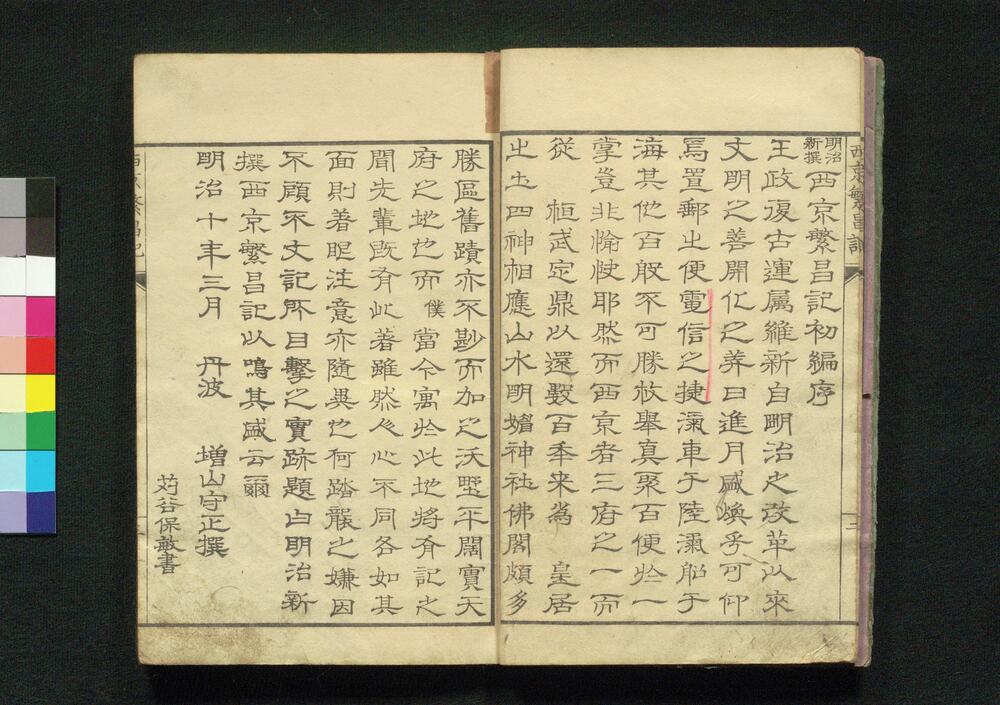 明治新撰西京繁昌記初編序
王政復古運属維新自明治之改革以來
文明之善開化之美日進月盛煥乎可仰
焉置郵之便電信之捷滊車于陸滊船于
海其他百般不可勝枚舉真聚百便於一
掌豈非愉快耶然而西京者三府之一而
從 桓武定鼎以還數百年来為 皇居
之土四神相應山水明媚神社佛閣頗多
勝區舊蹟亦不尠而加之沃埜平闊實天
府之地也而僕當今寓於此地将有記之
聞先輩既有此著雖然人心不同各如其
面則着眼注意亦随異也何踏襲之嫌因
不顧不文記所目擊之實跡題曰明治新
撰西京繁昌記以鳴其盛云爾
明治十年三月 丹波 増山守正撰
苅谷保敏書